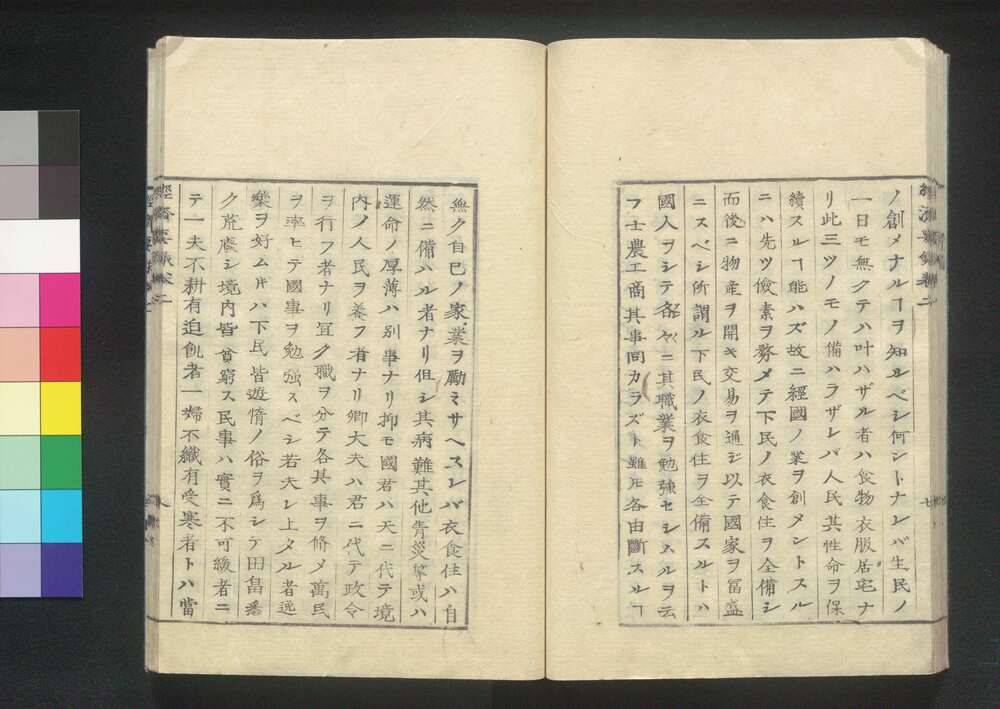 ノ創メナルヿヲ知ルベシ何ントナレバ生民ノ
一日モ無クテハ叶ハザル者ハ食物衣服居宅ナ
リ此三ツノモノ備ハラザレバ人民其性命ヲ保
續スルヿ能ハズ故ニ經國ノ業ヲ創メントスル
ニハ先ヅ儉素ヲ務メテ下民ノ衣食住ヲ全備シ
而後ニ物産ヲ開キ交易ヲ通ジ以テ國家ヲ冨盛
ニスベシ所謂ル下民ノ衣食住ヲ全備スルトハ
國人ヲシテ各々ニ其職業ヲ勉強セシムルヲ云
フ士農工商其事同カラズト雖𪜈各由斷スルヿ
無ク自己ノ家業ヲ勵ミサヘスレバ衣食住ハ自
然ニ備ハル者ナリ但シ其病難其他青災等或ハ
運命ノ厚薄ハ別事ナリ抑モ國君ハ天ニ代テ境
内ノ人民ヲ養フ者ナリ卿大夫ハ君ニ代テ政令
ヲ行フ者ナリ宜ク職ヲ分テ各其事ヲ脩メ萬民
ヲ率ヒテ國事ヲ勉強スベシ若夫レ上タル者逸
樂ヲ好ムキハ下民皆遊惰ノ俗ヲ爲シテ田畠悉
ク荒廢シ境内皆貧窮ス民事ハ實ニ不可緩者ニ
テ一夫不耕有迫飢者一婦不織有受寒者トハ當